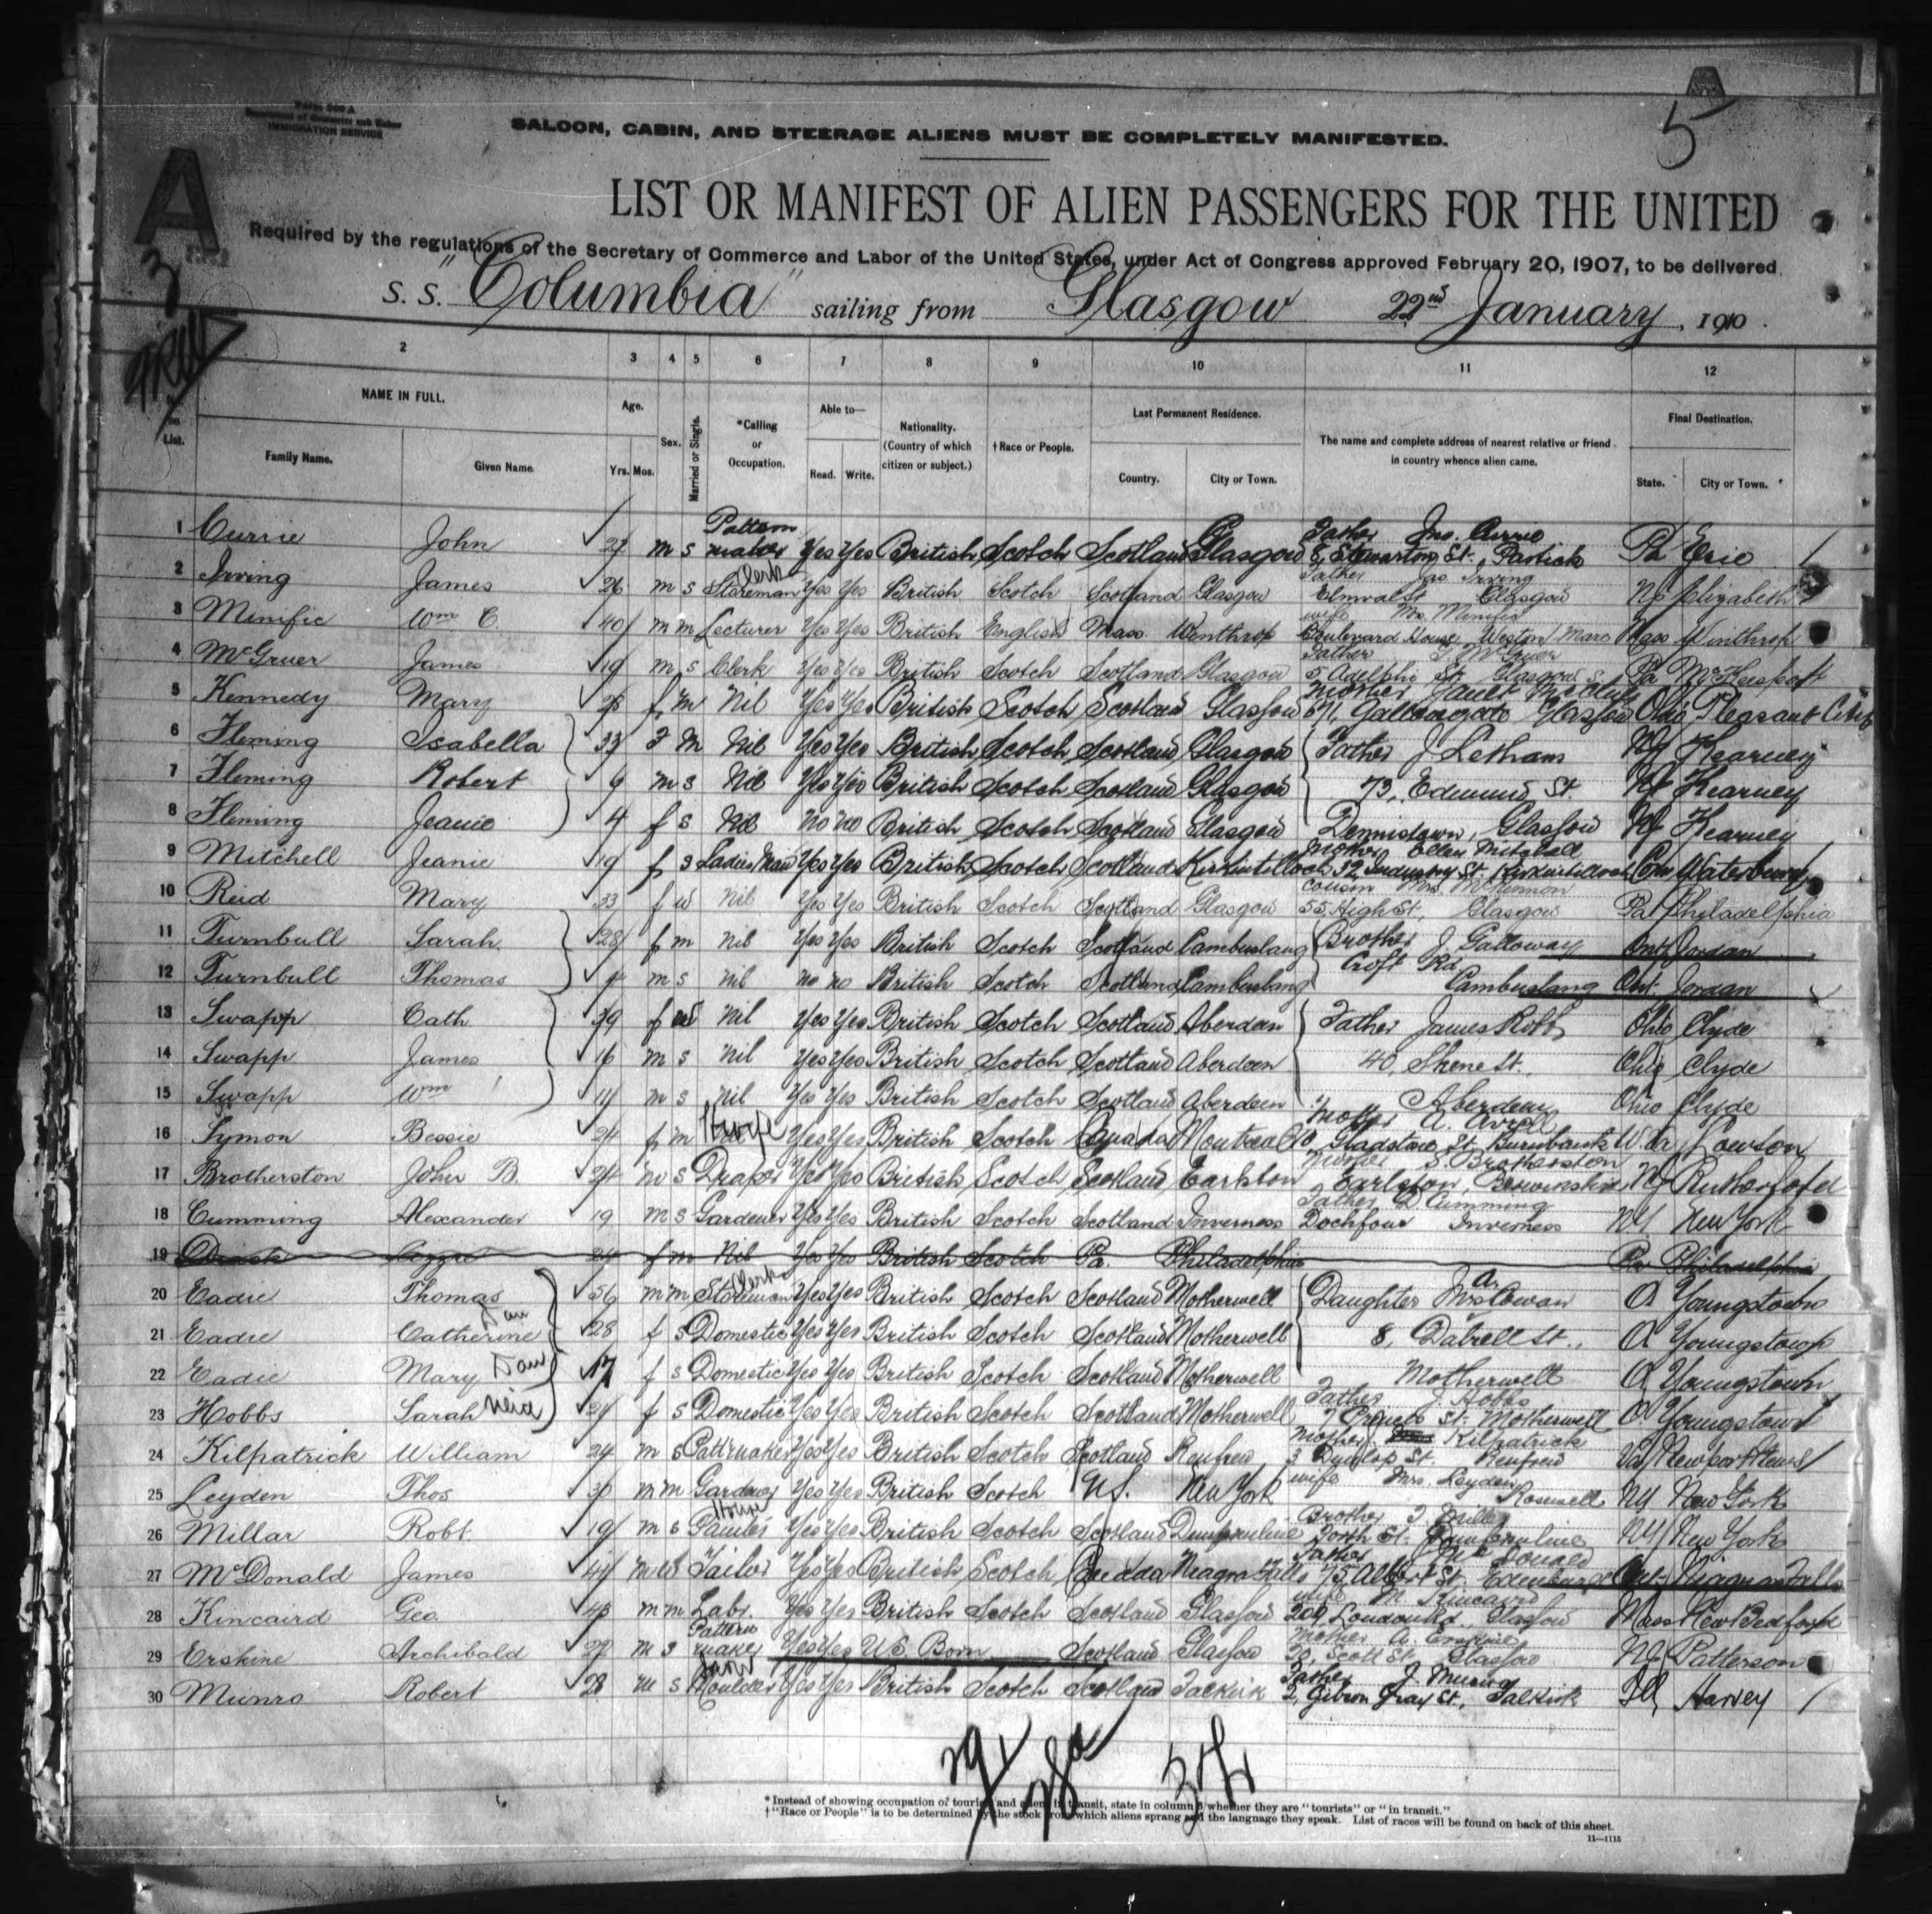 Form 500 A
Department of Commerce and Labor
IMMIGRATION SERVICE
SALOON, CABIN, AND STEERAGE ALIENS MUST BE COMPLETELY MANIFESTED.
5
A
3
LIST OR MANIFEST OF ALIEN PASSENGERS FOR THE UNITED
Required by the regulations of the Secretary of Commerce and Labor of the United States, under Act of Congress approved February 20, 1907, to be delivered
S. S. "Columbia" sailing from Glasgow 22nd January, 1910.
2 3 4 5 6 7 8 9 10 11 12
NAME IN FULL. Age. Sex. Married or Single. *Calling or Occupation. Able to— Nationality. (Country of which citizen or subject.) †Race or People. Last Permanent Residence. The name and complete address of nearest relative or friend in country whence alien came. Final Destination.
on List. Family Name. Given Name. Yrs. Mos. Read. Write. Country. City or Town. State. City or Town.
1 Currie John 27 m s Pattern maker Yes Yes British Scotch Scotland Glasgow Father Jno. Currie 8, Stewarton St., Partick Pa Erie
2 Irving James 26 m s Storeman Clerk Yes Yes British Scotch Scotland Glasgow Father Jas Irving Elmvale St Glasgow NJ Elizabeth
3 Minific Wm C. 40 m m Lecturer Yes Yes British English Mass. Winthrop wife Mrs. Minific Boulevard House Weston Mare Mass Winthrop
4 McGruer James 19 m s Clerk Yes Yes British Scotch Scotland Glasgow Father McGruer 5, Adelphi St. Glasgow S. Pa McKeesport
5 Kennedy Mary 28 f m Nil Yes Yes British Scotch Scotland Glasgow Mother Janet 671, Gallowgate Glasgow Ohio Pleasant City
6 Fleming Isabella 33 f m Nil Yes Yes British Scotch Scotland Glasgow Father J Letham NJ Kearney
7 Fleming Robert 9 m s Nil Yes Yes British Scotch Scotland Glasgow 73, Edmund St. NJ Kearney
8 Fleming Jeanie 4 f s Nil No No British Scotch Scotland Glasgow Dennistown, Glasgow NJ Kearney
9 Mitchell Jeanie 19 f s Ladies Maid Yes Yes British Scotch Scotland Kirkintilloch Mother Ellen Mitchell 32 Industry St. Kirkintilloch Con Waterbury
10 Reid Mary 33 f w Nil Yes Yes British Scotch Scotland Glasgow Cousin Mrs. McKinnon 55, High St., Glasgow Pa Philadelphia
11 Turnbull Sarah 28 f m Nil Yes Yes British Scotch Scotland Cambuslang Brother J. Galloway Ont Jordan
12 Turnbull Thomas m s Nil no no British Scotch Scotland Cambuslang Croft Rd Cambuslang Ont. Jordan
13 Swapp Cath 39 f Nil Yes Yes British Scotch Scotland Aberdeen Father James Robb Ohio Clyde
14 Swapp James 16 m s Nil Yes Yes British Scotch Scotland Aberdeen 40, Skene St. Ohio Clyde
15 Swapp Wm 14 m s Nil Yes Yes British Scotch Scotland Aberdeen Aberdeen Ohio Clyde
16 Symon Bessie 24 f m Yes Yes British Scotch Canada Montreal Mother Gladstone St. Burnbank
17 Brotherston John B. 24 m s Draper Yes Yes British Scotch Scotland Earlston S. Brotherston Earlston, Berwickshire NJ Rutherford
18 Cumming Alexander 19 m s Gardener Yes Yes British Scotch Scotland Inverness Father D. Cumming Dochfour Inverness NY New York
19 24 f m Nil Yes Yes British Scotch Pa. Philadelphia Pa Philadelphia
20 Eadie Thomas 56 m m Storeman Clerk Yes Yes British Scotch Scotland Motherwell Daughter Mrs A Cowan O Youngstown
21 Eadie Catherine Dau 28 f s Domestic Yes Yes British Scotch Scotland Motherwell 8, Dalzell St., O Youngstown
22 Eadie Mary Dau 17 f s Domestic Yes Yes British Scotch Scotland Motherwell Motherwell O Youngstown
23 Hobbs Sarah Neice 21 f s Domestic Yes Yes British Scotch Scotland Motherwell Father J. Hobbs 7 St. Motherwell O. Youngstown
24 Kilpatrick William 24 m s Pattrnmaker Yes Yes British Scotch Scotland Renfrew Mother Kilpatrick 3 Dunlop St. Renfrew Va Newport News
25 Leyden Thos 30 m m Gardener Yes Yes British Scotch U.S. New York wife Mrs. Leyden Rosewell NY New York
26 Millar Robt. 19 m s House Painter Yes Yes British Scotch Scotland Dunfermline Brother Millar St. Dunfermline NY New York
27 McDonald James 44 m Tailor Yes Yes British Scotch Canada Niagra Falls Father McDonald 75, Albert St. Edinburgh Ont. Niagra Falls
28 Kincaird Geo. 43 m m Labr. Yes Yes British Scotch Scotland Glasgow wife M Kincaird 209 London Rd. Glasgow Mass New Bedford
29 Erskine Archibald 27 m s Pattern maker Yes Yes U.S. Born Scotland Glasgow Mother A. Erskine Scott St Glasgow NJ Patterson
30 Munro Robert 28 m s Iron Moulder Yes Yes British Scotch Scotland Falkirk Father J. Munro 2, Gibson Gray St., Falkirk Ill Harvey
*Instead of showing occupation of tourist and alien in transit, state in column 6 whether they are "tourists" or "in transit."
†"Race or People" is to be determined by the stock from which aliens sprang and the language they speak. List of races will be found on back of this sheet.
11—1115